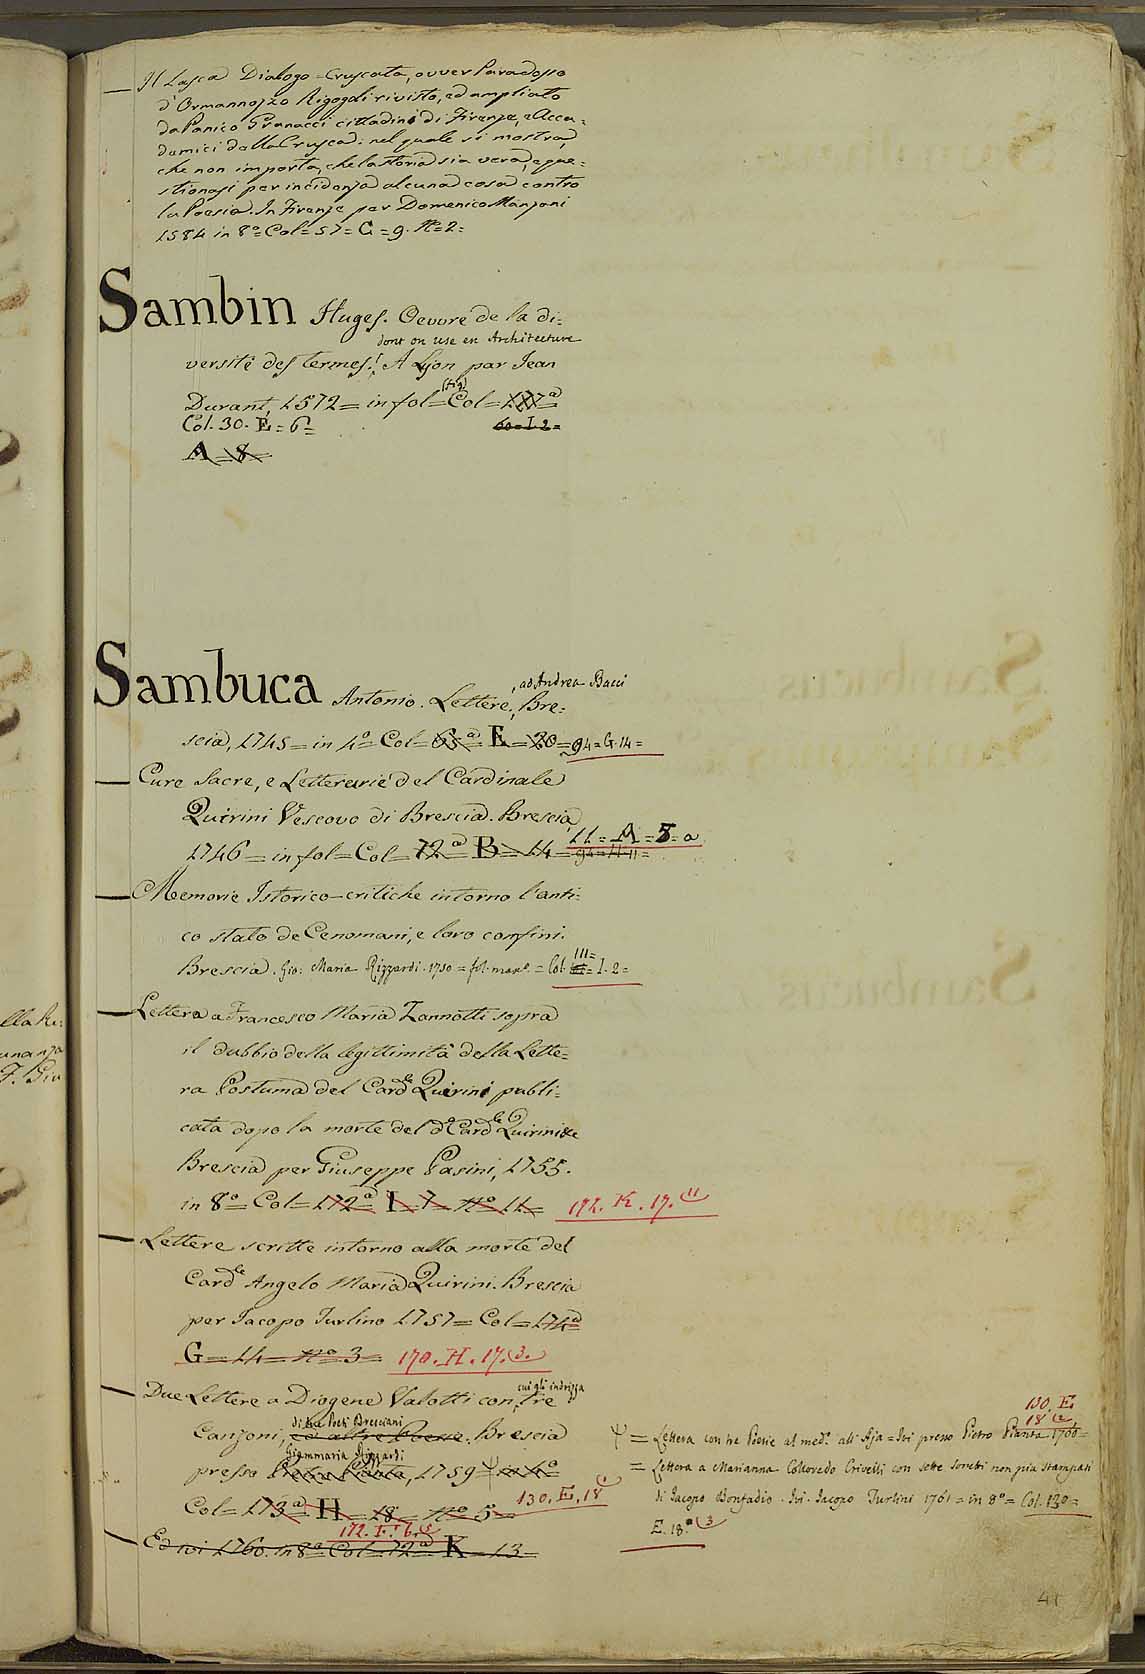 — Il Lasca Dialogo = Cruscata, ovver Paradosso
d'Ormannozzo Rigogoli rivisto, ed ampliato
da Panico Granacci cittadini di Firenze, e Acca=
demici della Crusca: nel quale si mostra,
che non importa, che la storia sia vera, e que=
stionasi per incidenza alcuna cosa contro
la Poesia. In Firenze per Domenico Manzani
1584 in 8º = Col = 57 = G = 9. Nº = 2 =
Sambin Huges. Oeuvre de la di=
dont on use en Architecture
versitè des termes. A Lyon par Jean
(fig)
Durant, 1572 = in fol = Col = 127ª
Col. 30. E = 6 =
60 = I. 2 =
A = 8 =
, ad Andrea Bacci
Sambuca Antonio. Lettere, Bre=
scia, 1745 = in 4º Col = 65ª E = 20 = 94 = G. 14 =
— Cure Sacre, e Letterarie del Cardinale
Quirini Vescovo di Brescia. Brescia,
11 = A = 5 = a
1746 = in fol = Col = 72ª B = 14 = 94 = H. 11 =
— Memorie Istorico-critiche intorno l'anti=
co stato de Cenomani, e loro confini.
111 =
Brescia. Gio: Maria Rizzardi. 1750 = fol. mass. = Col. = I. 2 =
— Lettera a Francesco Maria Zannotti sopra
il dubbio della legittimità della Lette=
ra Postuma del Cardle Quirini publi=
cata dopo la morte del dº Cardle Quirini
Brescia per Giuseppe Pasini, 1755.
in 8º = Col = 172ª I = 7 = nº 11 = 172. K. 17. 11
— Lettere scritte intorno alla morte del
Cardle Angelo Maria Quirini. Brescia
per Jacopo Turlino 1757 = Col = 174ª
G = 14 = nº 3 = 170. H. 17. 3.
cui gli indrizza
— Due Lettere a Diogene Valotti con, tre
di tre Poeti Bresciani
Canzoni, ed altre Poesie. Brescia
Giammaria Rizzardi
presso Pietro Pianta, 1759 = Ψ in 4º
Col = 173ª H = 18 = nº 5 = 130. E. 18
172. I. 6.
— Ed ivi 1760. in 8º Col = 72ª K = 13 =
130. E
18 2
Ψ = Lettera con tre Poesie al medº. all' Aja = Ivi presso Pietro Pianta 1760 =
= Lettera a Marianna Colloredo Crivelli con sette sonetti non pia stampati
di Jacopo Bonfadio. Ivi. Jacopo Turlini 1761 = in 8º = Col. 130 =
E. 18. 3
41